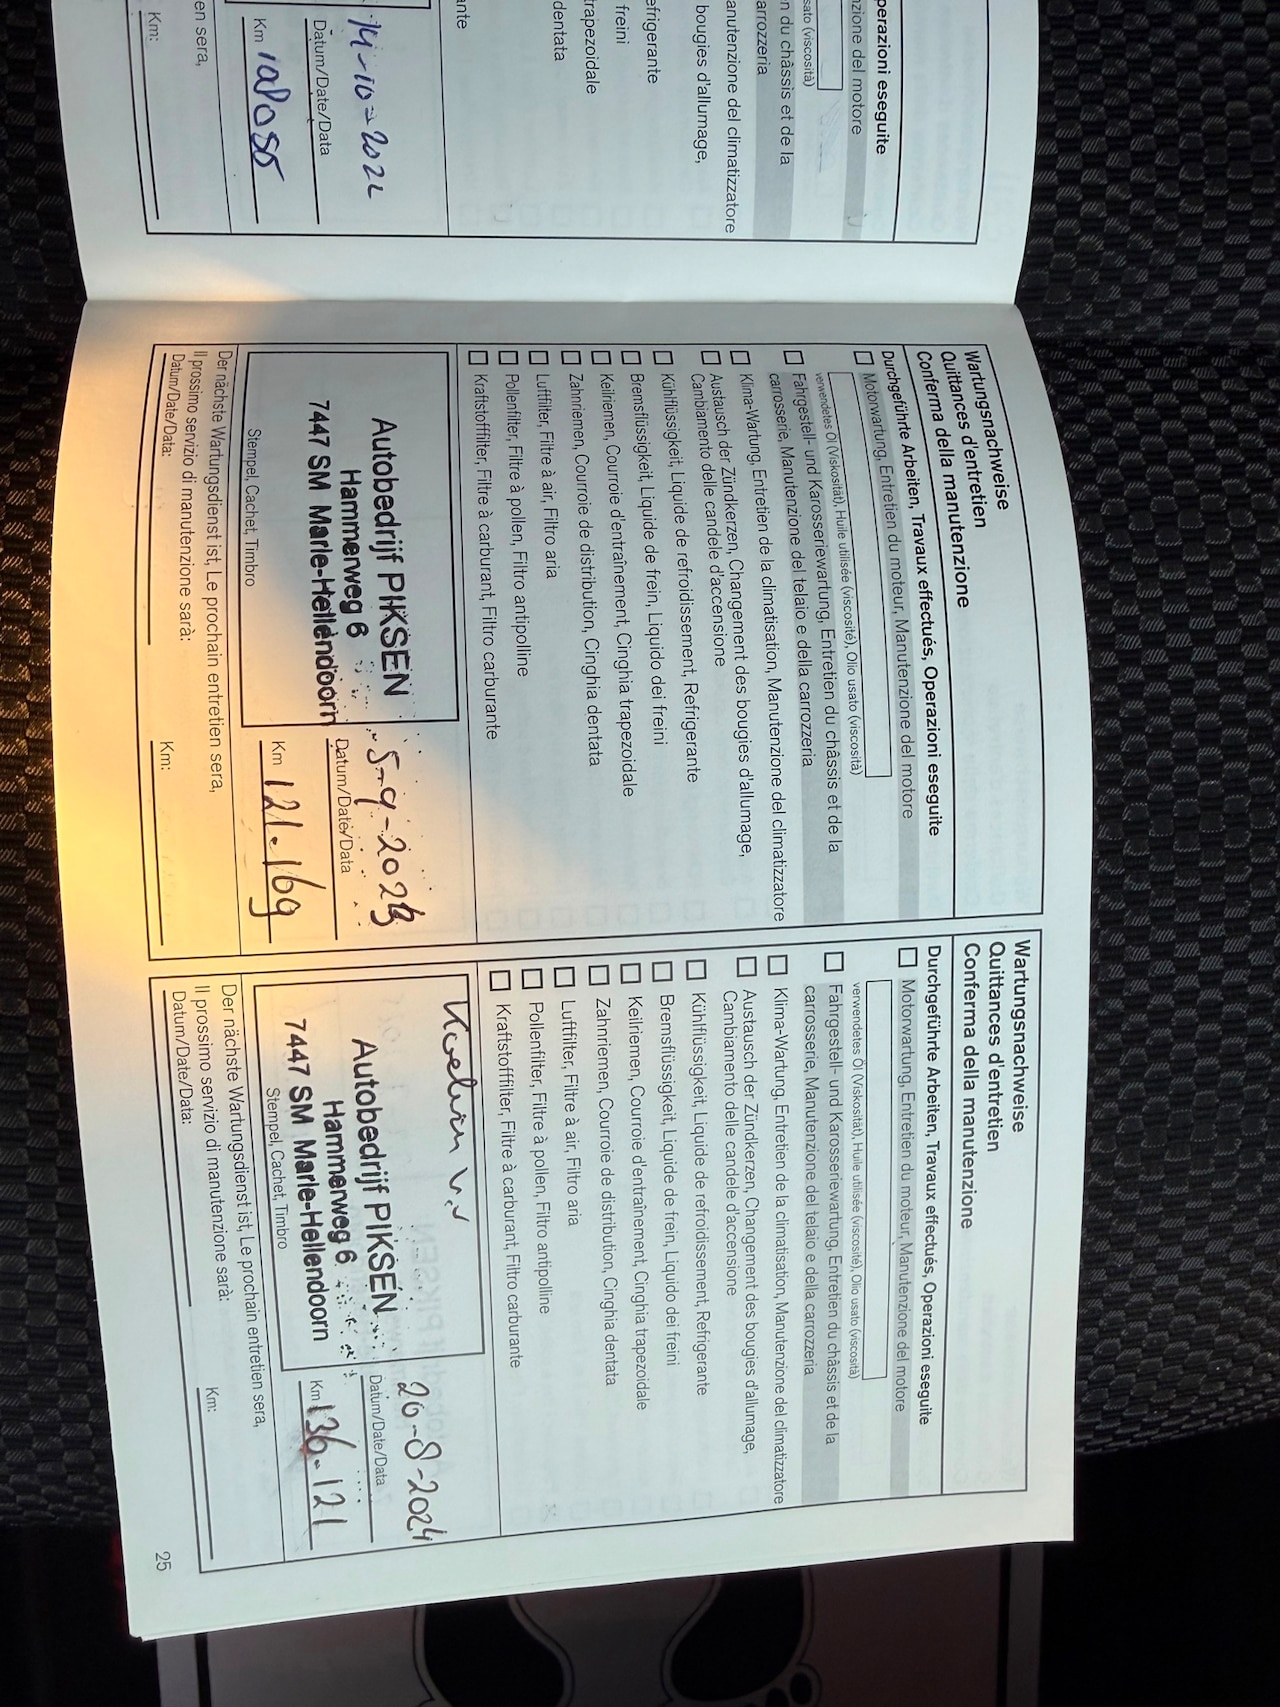 perazioni eseguite
zione del motore
sato (viscosità)
n du châssis et de la
arrozzeria
anutenzione del climatizzatore
bougies d'allumage,
efrigerante
freini
rapezoidale
dentata
ante
14-10-202
Datum/Date/Data
Km
en sera,
Km:
Wartungsnachweise
Quittances d'entretien
Conferma della manutenzione
Durchgeführte Arbeiten, Travaux effectués, Operazioni eseguite
Motorwartung, Entretien du moteur, Manutenzione del motore
verwendetes Öl (Viskosität), Huile utilisée (viscosité), Olio usato (viscosità)
Fahrgestell- und Karosseriewartung, Entretien du châssis et de la
carrosserie, Manutenzione del telaio e della carrozzeria
Klima-Wartung, Entretien de la climatisation, Manutenzione del climatizzatore
Austausch der Zündkerzen, Changement des bougies d'allumage,
Cambiamento delle candele d'accensione
Kühlflüssigkeit, Liquide de refroidissement, Refrigerante
Bremsflüssigkeit, Liquide de frein, Liquido dei freini
Keilriemen, Courroie d'entraînement, Cinghia trapezoidale
Zahnriemen, Courroie de distribution, Cinghia dentata
Luftfilter, Filtre à air, Filtro aria
Pollenfilter, Filtre à pollen, Filtro antipolline
Kraftstofffilter, Filtre à carburant, Filtro carburante
Autobedrijf PIKSEN
Hammerweg 6
7447 SM Marle-Hellendoorn
5-9-2023
Datum/Date/Data
Km 121.169
Stempel, Cachet, Timbro
Der nächste Wartungsdienst ist, Le prochain entretien sera,
Il prossimo servizio di manutenzione sarà:
Datum/Date/Data:
Km:
Wartungsnachweise
Quittances d'entretien
Conferma della manutenzione
Durchgeführte Arbeiten, Travaux effectués, Operazioni eseguite
Motorwartung, Entretien du moteur, Manutenzione del motore
verwendetes Öl (Viskosität), Huile utilisée (viscosité), Olio usato (viscosità)
Fahrgestell- und Karosseriewartung, Entretien du châssis et de la
carrosserie, Manutenzione del telaio e della carrozzeria
Klima-Wartung, Entretien de la climatisation, Manutenzione del climatizzatore
Austausch der Zündkerzen, Changement des bougies d'allumage,
Cambiamento delle candele d'accensione
Kühlflüssigkeit, Liquide de refroidissement, Refrigerante
Bremsflüssigkeit, Liquide de frein, Liquido dei freini
Keilriemen, Courroie d'entraînement, Cinghia trapezoidale
Zahnriemen, Courroie de distribution, Cinghia dentata
Luftfilter, Filtre à air, Filtro aria
Pollenfilter, Filtre à pollen, Filtro antipolline
Kraftstofffilter, Filtre à carburant, Filtro carburante
Autobedrijf PIKSEN
Hammerweg 6
7447 SM Marle-Hellendoorn
20-8-2024
Datum/Date/Data
Km 136.121
Stempel, Cachet, Timbro
Der nächste Wartungsdienst ist, Le prochain entretien sera,
Il prossimo servizio di manutenzione sarà:
Datum/Date/Data:
Km:
25